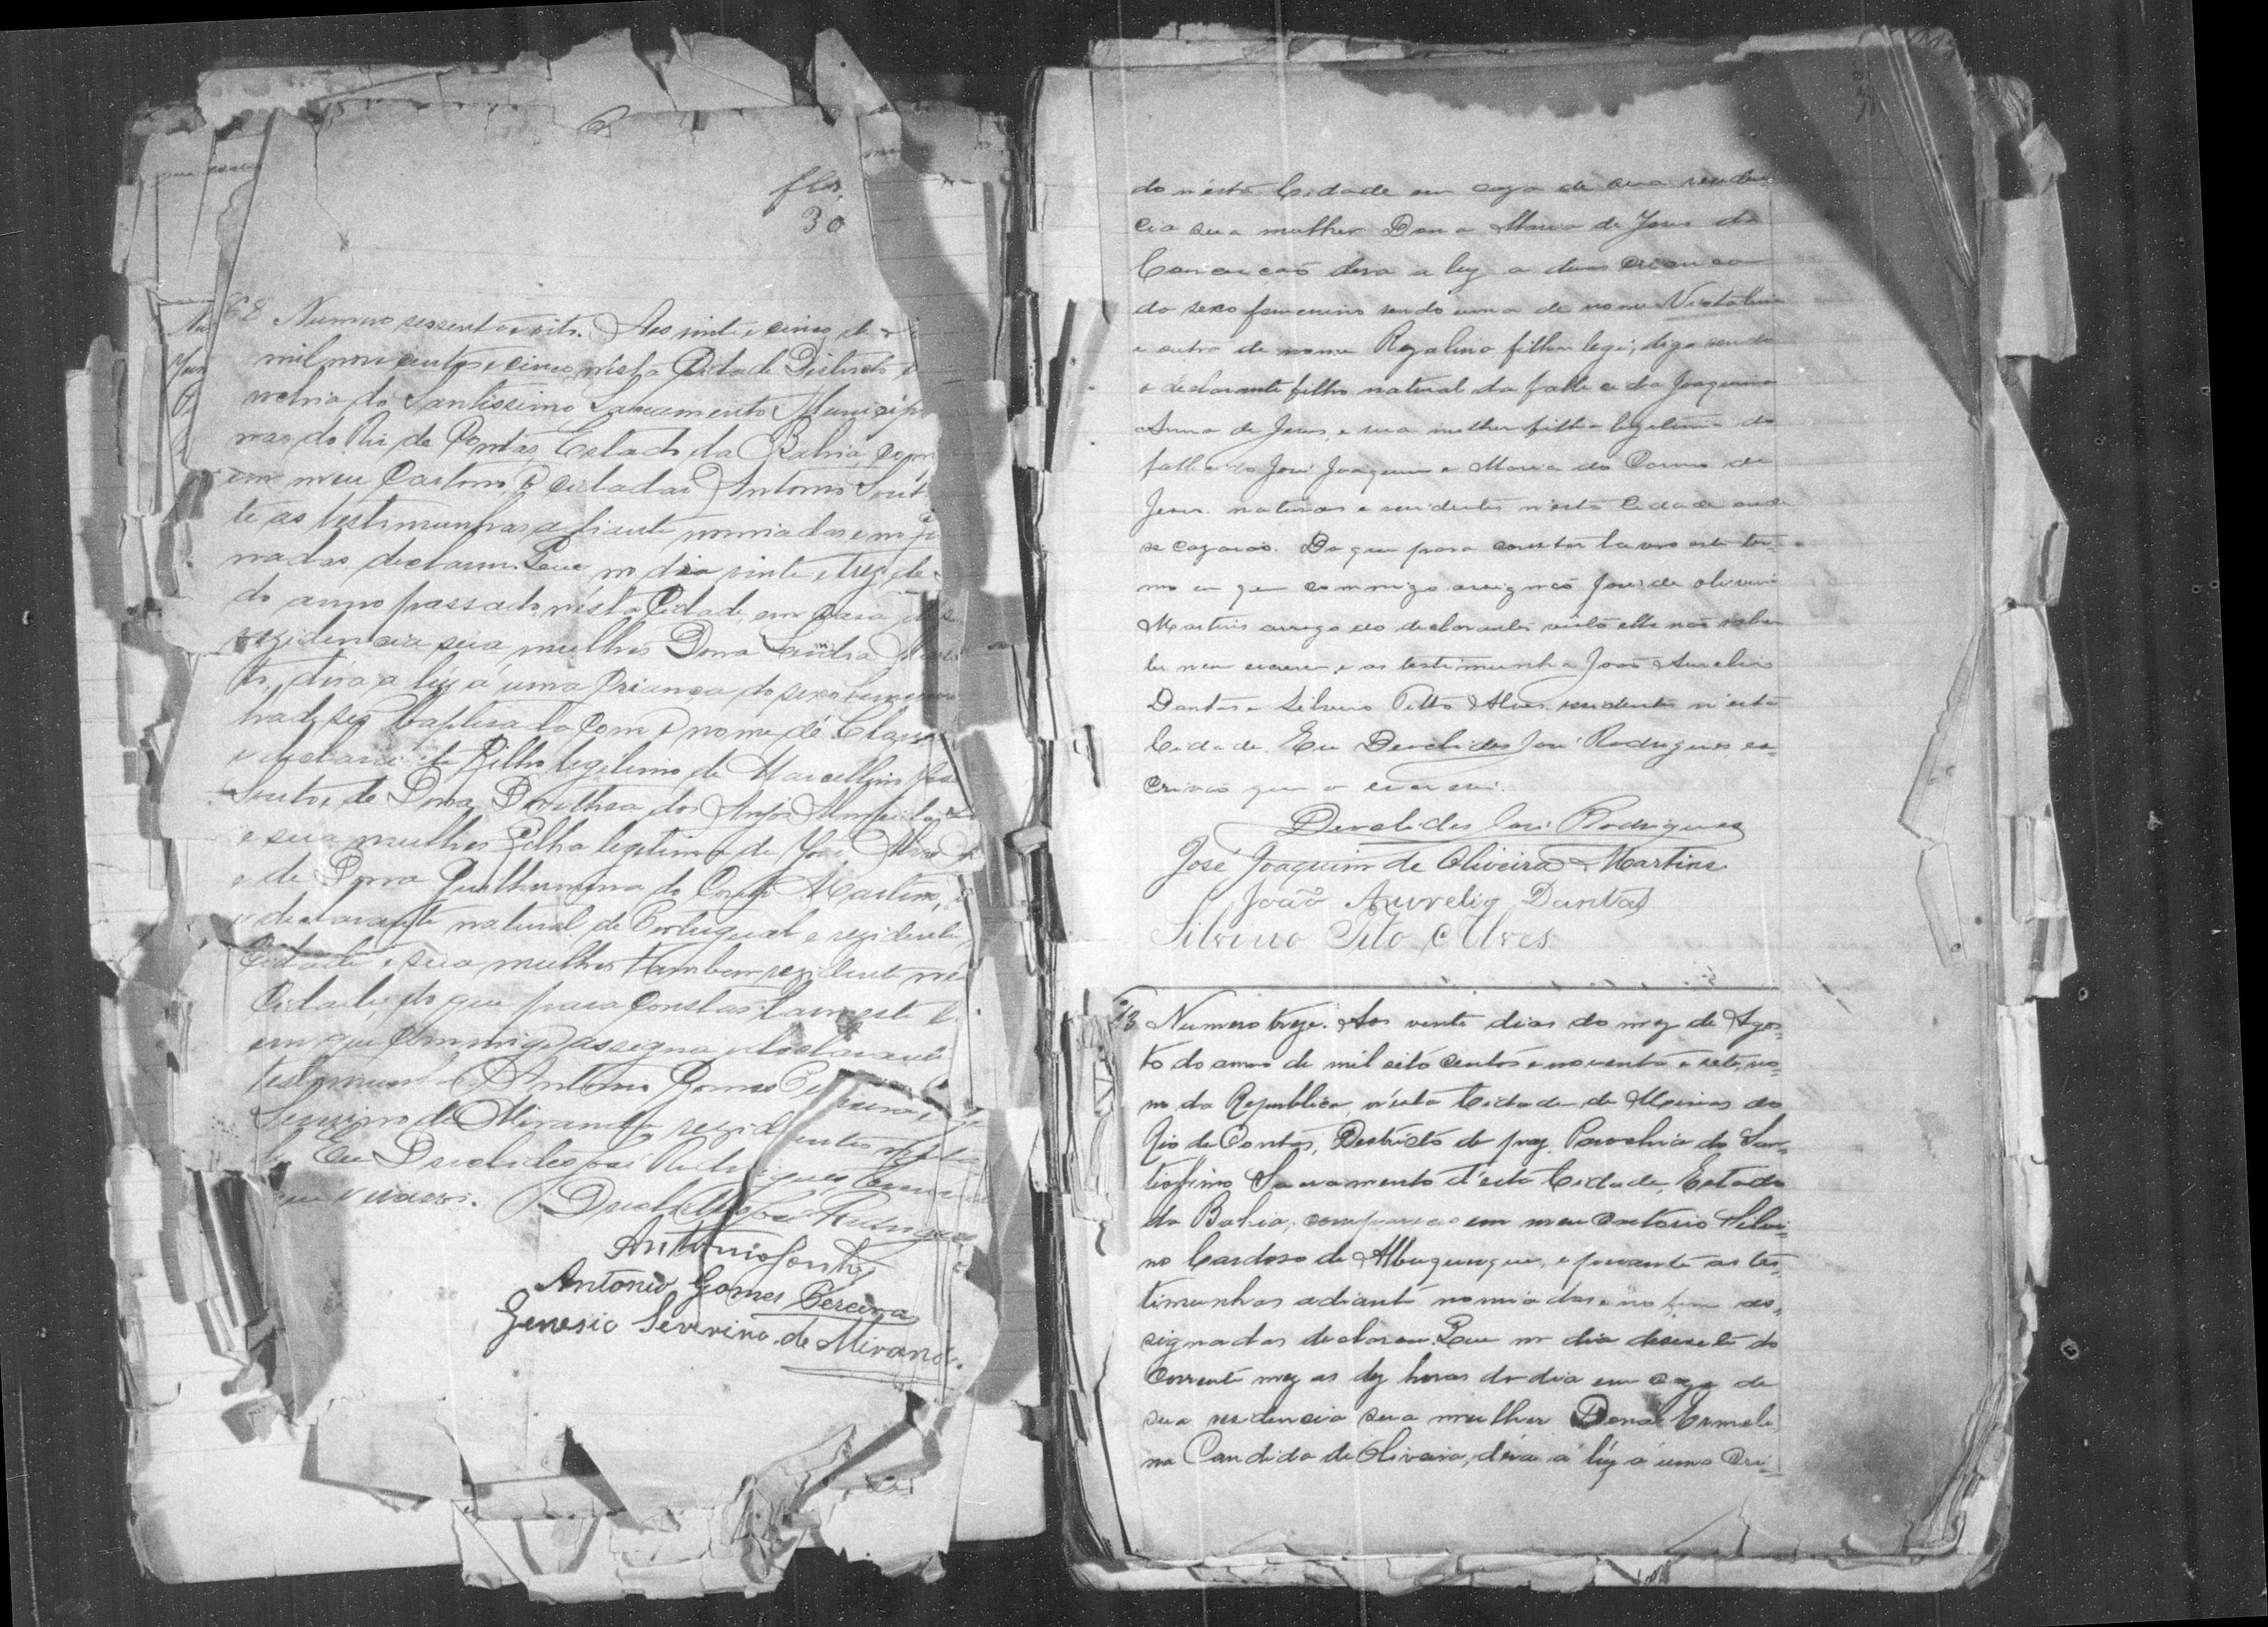 fls.
30
68 Numero sessenta e oito. Aos vinte e cinco de
mil nove centos e cinco, n'esta Cidade Districto
rochia do Santissimo Sacramento Municip
nas do Rio de Contas, Estado da Bahia, com
em meu Cartorio, o cidadão Antonio Sout
te as testimunhas adiante nomiadas e no fi
nadas, declarou. Que no dia vinte e trez de
do anno passado, n'esta Cidade, em casa de
rezidencia sua mulher Dona
to, dera a luz á uma Criança do sexo
ha de ser baptisada com o nome de
o declarante Filho legitimo de Marcellino José
Souto, e de Dona Dorothea dos Anjos
e sua mulher Filha legitima de José
e de Dona Guilhermina do Martins,
o declarante natural de Portugual e rezidente
Cidade e sua mulher tambem rezidente n'e
Cidade, do que para Constar lavro este t
em que Commigo assigna o declarante
testimunhas Antonio Gomes Pereira,
Severino de Miranda rezidentes n'esta
Eu Deoclides José Rodrigues Escrivão
que o escrevi. Deoclides José Rodrigues
Antonio Souto
Antonio Gomes Pereira
Genesio Severino de Mirand.
do n'esta Cidade em caza de sua residen
cia sua mulher Dona Maria de Jesus da
Conceicão dera a luz a duas criancas
do sexo femenino sendo uma de nome
e outra de nome Rozalina filhas legi, digo sendo
o declarante filho natural da fallecida Joaquina
Anna de Jesus, e sua mulher filha legitima do
fallecido José Joaquim e Maria do Carmo de
Jesus. naturaes e residentes n'esta Cidade onde
se cazarão. Do que para constar lavro este ter-
mo em que commigo assignão José de Oliveira
Martins arrogo do declarante visto elle não saber
ler nem escrever e as testimunha João Aurelio
Dantas e Silvino Pitto Alves, residentes n'esta
Cidade. Eu Deoclides José Rodrigues, es-
crivão que o escrevi.
Deoclides José Rodrigues
José Joaquim de Oliveira Martins
João Aurelio Dantas
Silvino Pito Alves
13 Numero treze. Aos vinte dias do mez de Agos-
to do anno de mil oito centos e noventa e sete, no-
no da Republica, n'esta Cidade de Minas do
Rio de Contas, Destricto de paz, Parochia do San-
tissimo Sacramento d'esta Cidade, Estado
da Bahia, compareceo em meu cartorio Silvi-
no Cardoso de Albuquerque, e perante as tes-
timunhas adiante nomiadas e no fim as-
signadas declarou. Que no dia desesete do
corrente mez as dez horas do dia em caza de
sua residencia sua mulher Dona Ermeli-
na Candida de Oliveira, dera a lúz á uma Cri-